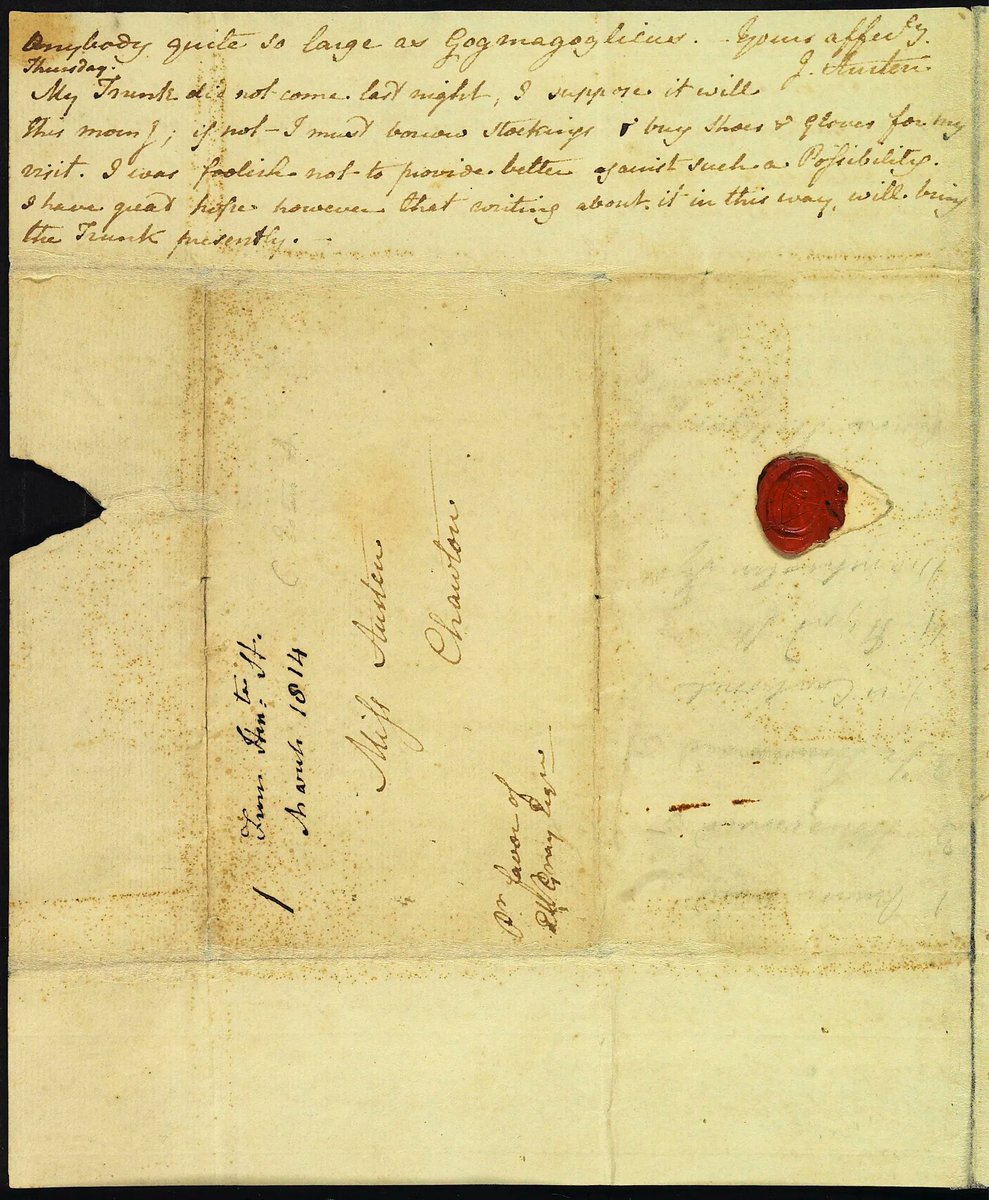 anybody quite so large as Gogmagoglicus. Yours affec:ly
J. Austen.
Thursday.
My Trunk did not come last night, I suppose it will
this morng; if not I must borrow Stockings & buy Shoes & Gloves for my
visit. I was foolish not to provide better against such a Possibility.
I have great hope however that writing about it in this way, will bring
the Trunk presently.
From Hen:ta St.
March 1814
Miss Austen
Chawton
Pr favor of